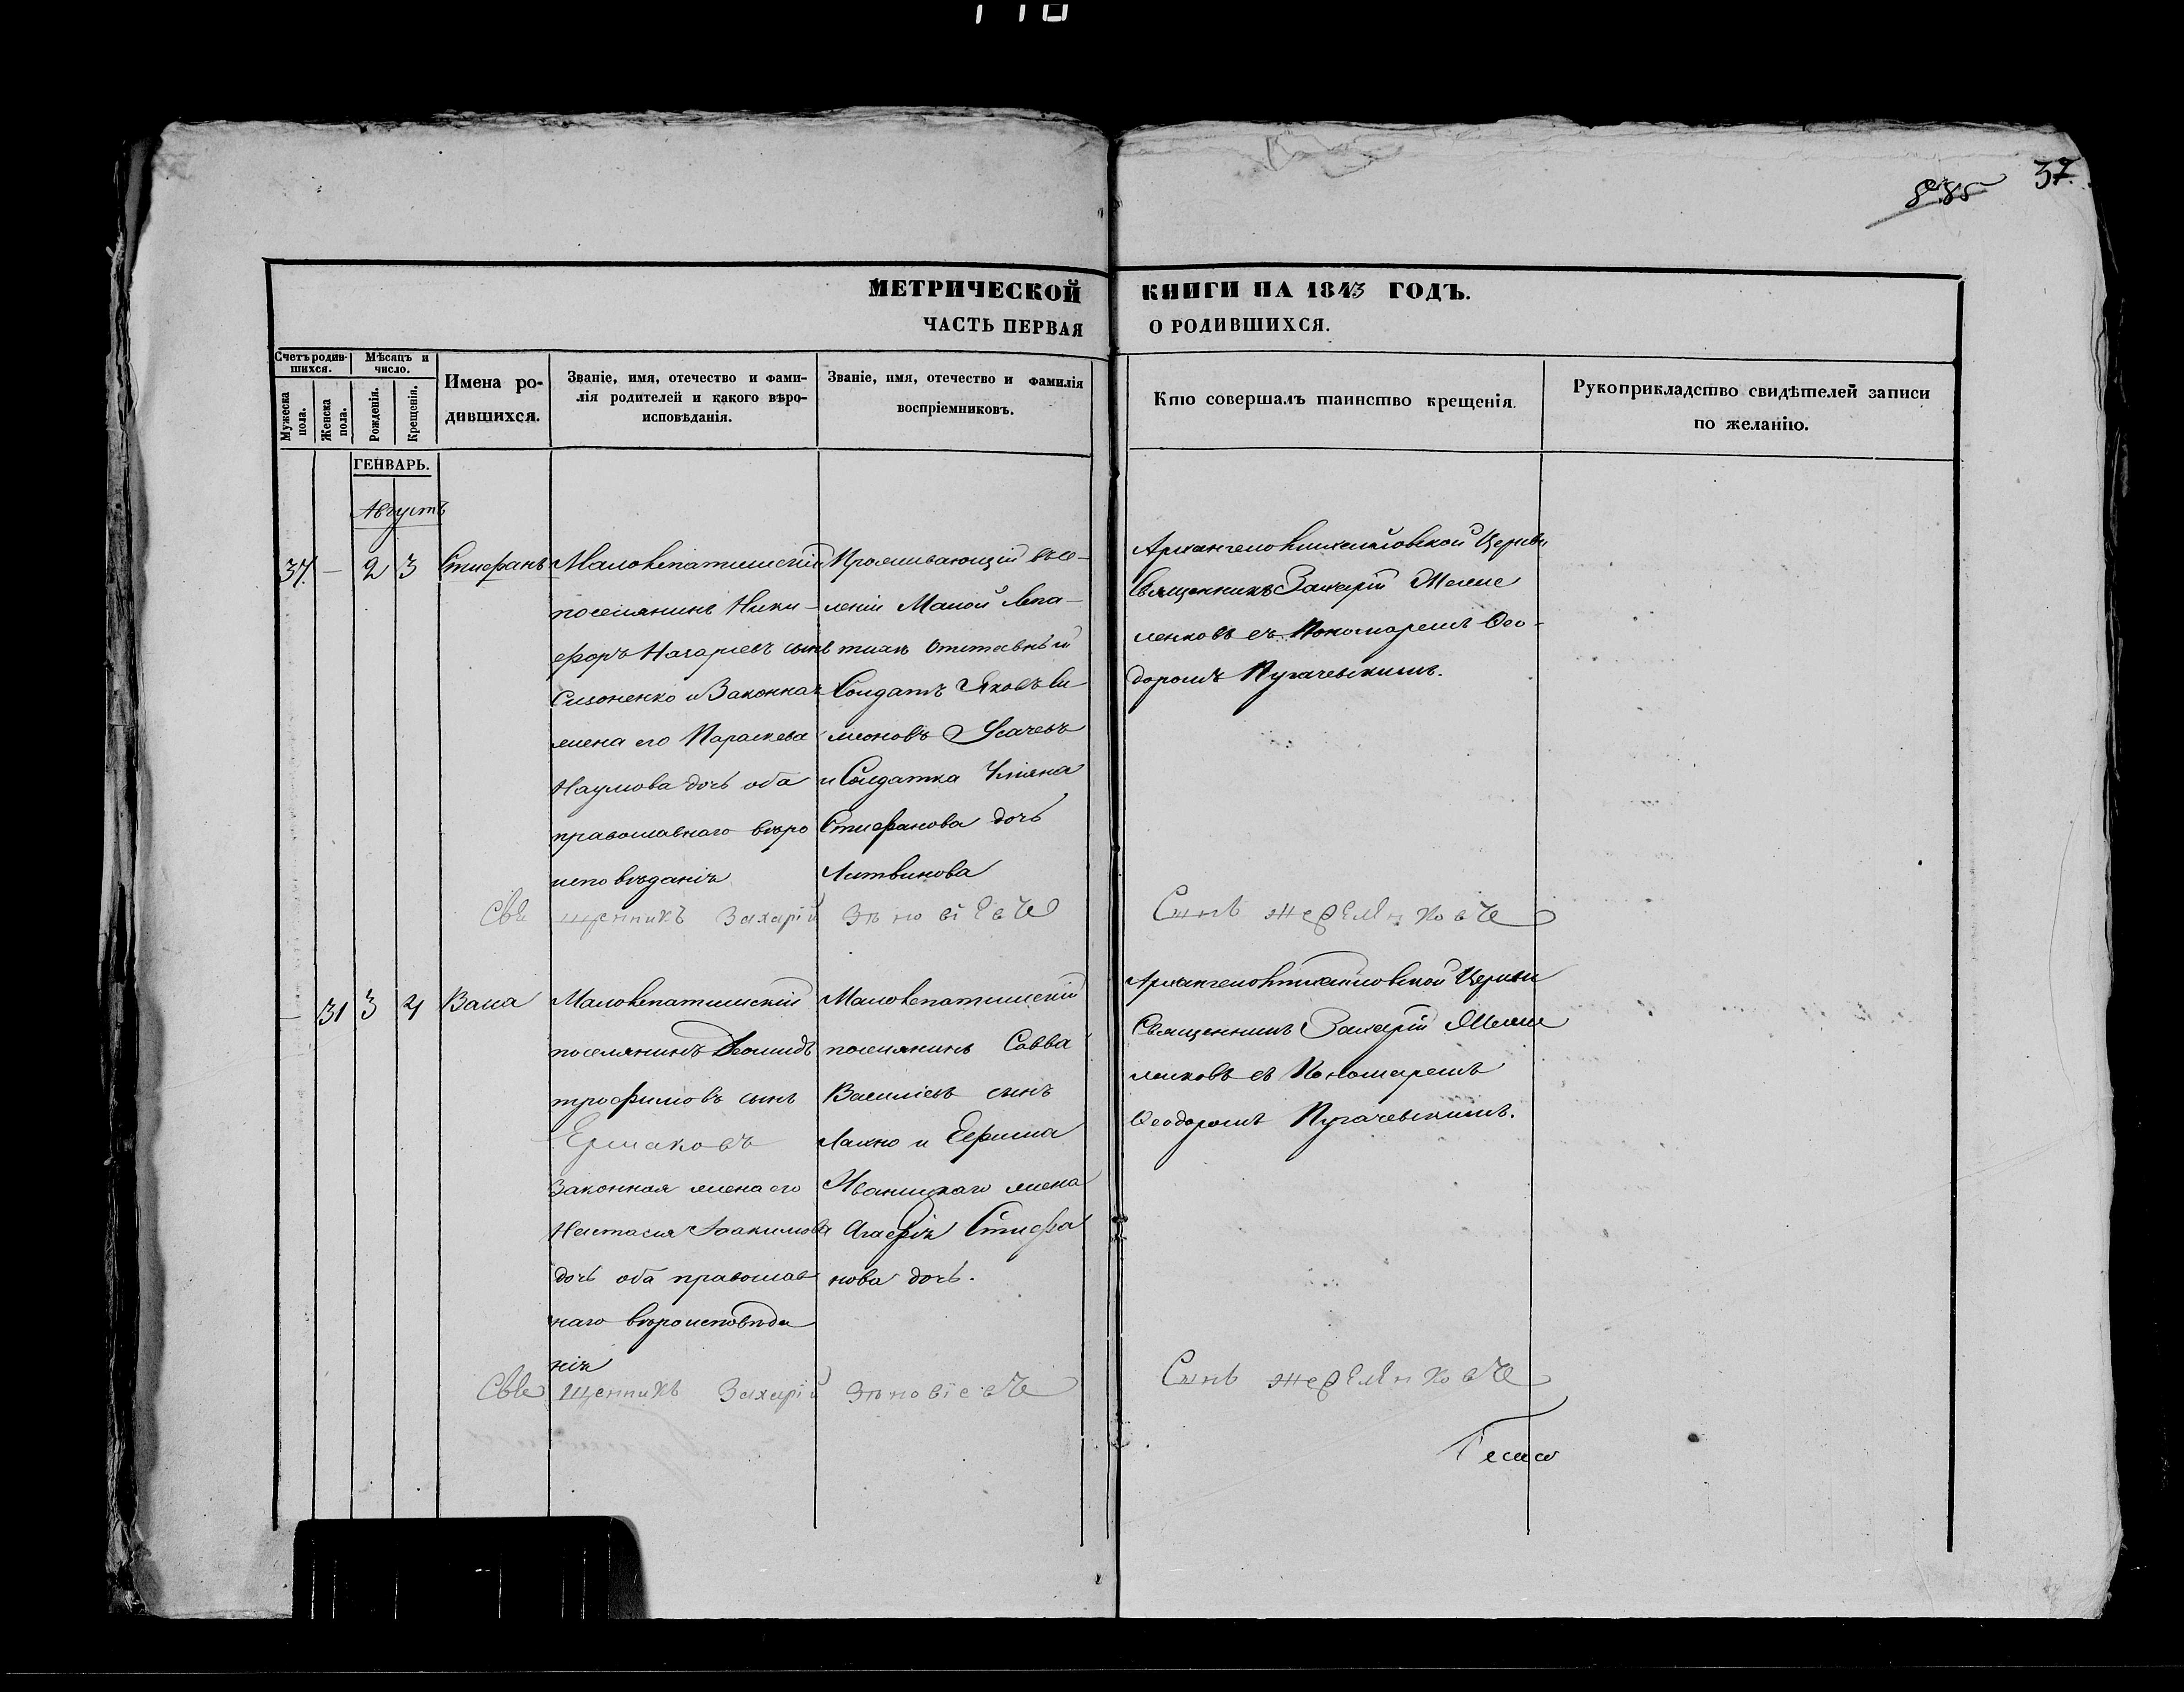 37.
МЕТРИЧЕСКОЙ КНИГИ НА 1843 ГОДЪ.
ЧАСТЬ ПЕРВАЯ О РОДИВШИХСЯ.
Счетъ родив-
шихся.
Мужеска
пола.
Женска
пола.
Мѣсяцъ и
число.
Рожденія.
Крещенія.
Имена ро-
дившихся.
Званіе, имя, отечество и фами-
лія родителей и какого вѣро-
исповѣданія.
Званіе, имя, отечество и фамилія
воспріемниковъ.
Кто совершалъ таинство крещенія.
Рукоприкладство свидѣтелей записи
по желанію.
ГЕНВАРЬ.
Августъ
37. — 2 3 Стефанъ
поселянинъ Ники-
форъ сынъ
Сизоненко и Законная
жена его Параскева
Наумова дочь оба
православнаго вѣро
исповѣданія
Проживающій въ се-
леніи Малой Лепа-
тихи отставный
Солдатъ Яковъ Си-
меоновъ Усачевъ
и Солдатка Уліяна
Стефанова дочь
Литвинова
Архангеломихайловской Церкви
Священникъ Захарій
съ Пономаремъ Ѳео-
доромъ Пугачевскимъ.
Священникъ Захарій
— 31 3 4
поселянинъ Леонидъ
трофимовъ сынъ
Ермаковъ
Законная жена его
Настасия Іоакимова
дочь оба православ
наго вѣроисповѣда
нія
поселянинъ Савва
Василіевъ сынъ
Лахно и Ефима
Иваницкаго жена
Агафія Стефа
нова дочь.
Архангеломихайловской Церкви
Священникъ Захарій
съ Пономаремъ
Ѳеодоромъ Пугачевскимъ.
Священникъ Захарій